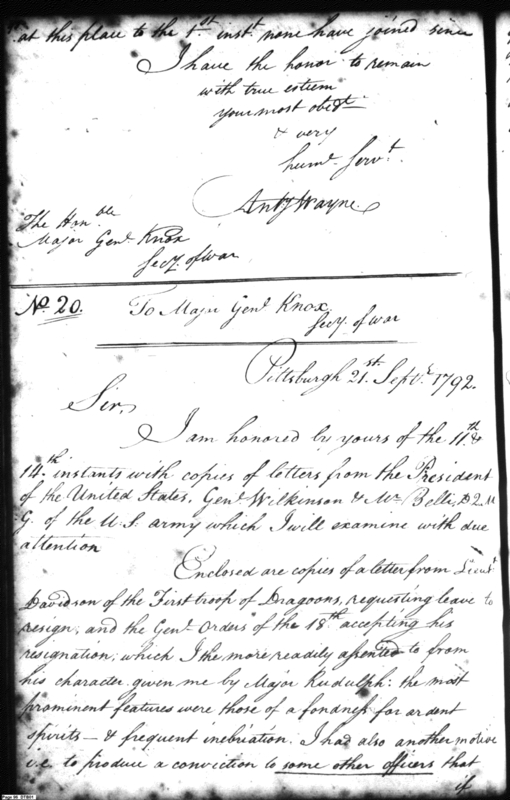 at this place to the 1st inst. none have joined since
I have the honor to remain
with true esteem
your most obedt
& very
huml. Servt.
Anty Wayne
The Honble
Major Genl. Knox
Secy. of War
No. 20. To Major Genl. Knox
Secy. of War
Pittsburgh 21st. Septr. 1792.
Sir,
I am honored by yours of the 11th &
14th. instants with copies of letters from the President
of the United States, Genl. Wilkinson & Mr. Belli, D.Q.M
G. of the U.S. army which I will examine with due
attention
Enclosed are copies of a letter from Lieut
Davidson of the First troop of Dragoons, requesting leave to
resign; and the Genl. Orders of the 18th accepting his
resignation; which I the more readily assented to from
his character given me by Major Rudulph: the most
prominent features were those of a fondness for ardent
spirits — & frequent inebriation. I had also another motive
i.e. to produce a conviction to some other officers that
if